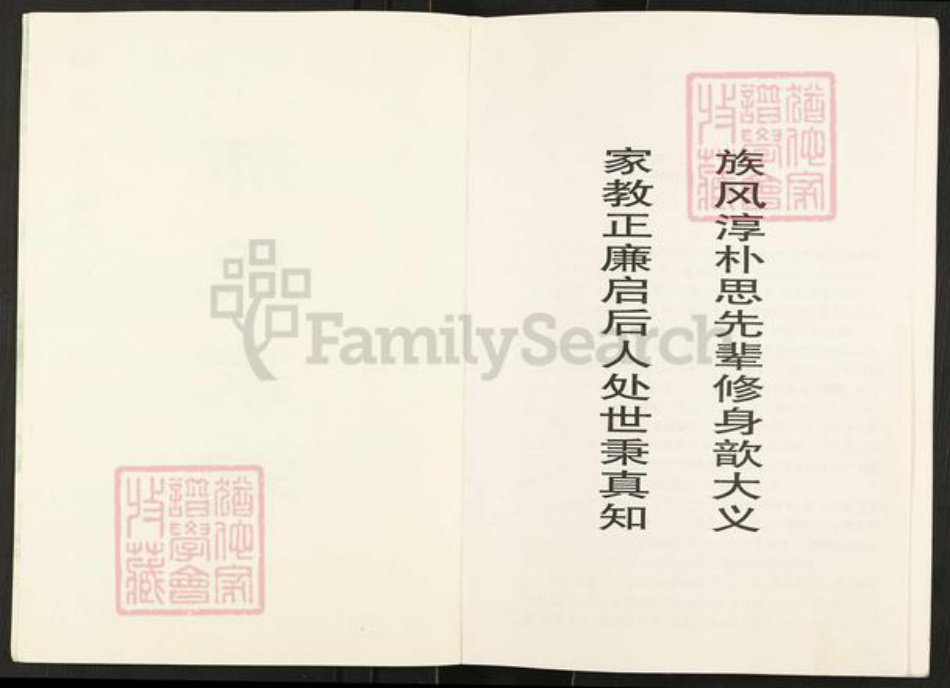 族风淳朴思先辈修身歆大义
家教正廉启后人处世秉真知
猶他家
譜學會
收藏
FamilySearch
猶他家
譜學會
收藏